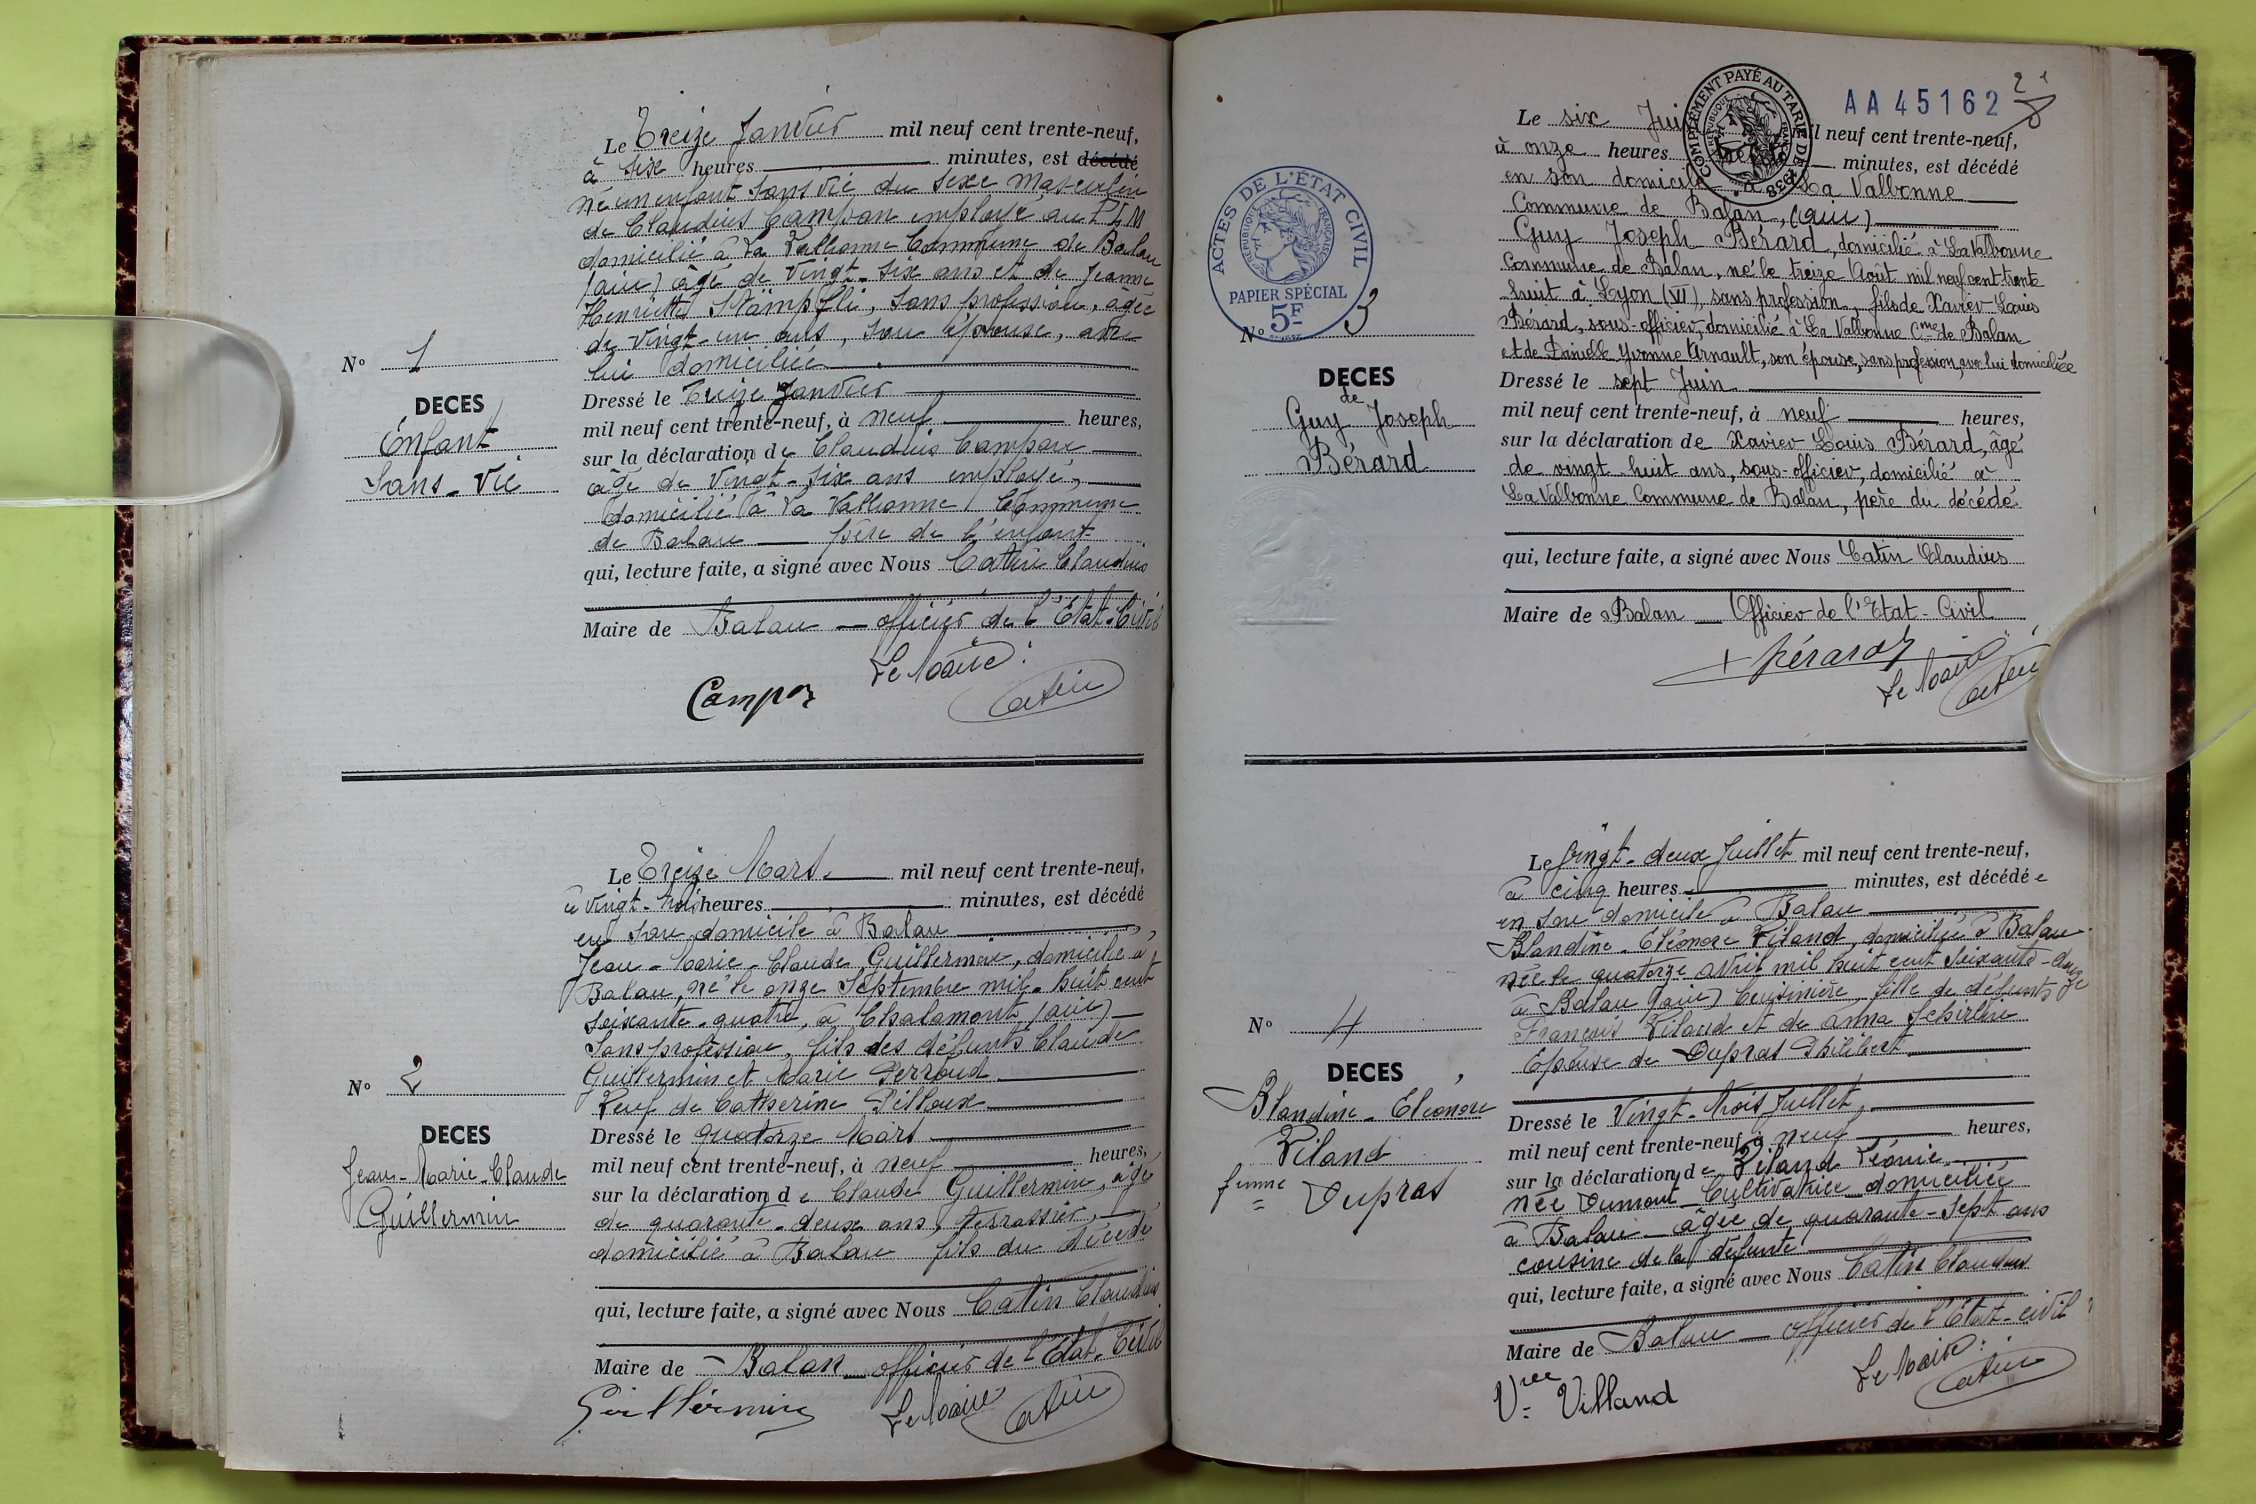 Le Treize Janvier mil neuf cent trente-neuf,
à six heures minutes, est décédé
né un enfant sans vie du sexe masculin
de Claudius Campon employé au P L M
domicilié à La Valbonne Commune de Balan
(ain) âgé de vingt-six ans et de Jeanne
Henriette Stämpfli, sans profession, âgée
de vingt-un ans, son épouse, avec
lui domiciliée
N° 1
DECES
Enfant
Sans-vie
Dressé le Treize Janvier
mil neuf cent trente-neuf, à neuf heures,
sur la déclaration de Claudius Campon
âgé de vingt-six ans employé,
domicilié à La Valbonne Commune
de Balan père de l'enfant
qui, lecture faite, a signé avec Nous Catin Claudius
Maire de Balan officier de l'Etat-Civil
Le Maire :
Campon Catin
Le Treize Mars mil neuf cent trente-neuf,
à vingt-trois heures minutes, est décédé
en son domicile à Balan
Jean-Marie-Claude Guillermin, domicilié à
Balan, né le onze Septembre mil-huit cent
soixante-quatre, à Chalamont (ain)
Sans profession, fils des défunts Claude
Guillermin et Marie Perroud
Veuf de Catherine Pelloux
N° 2
DECES
Jean-Marie-Claude
Guillermin
Dressé le quatorze Mars
mil neuf cent trente-neuf, à neuf heures,
sur la déclaration de Claude Guillermin, âgé
de quarante-deux ans, terrassier,
domicilié à Balan fils du décédé
qui, lecture faite, a signé avec Nous Catin Claudius
Maire de Balan officier de l'Etat-Civil
Guillermin Le Maire Catin
COMPLÉMENT PAYÉ AU TARIF DE 1938
AA 45162
2
ACTES DE L'ÉTAT CIVIL
RÉPUBLIQUE FRANÇAISE
PAPIER SPÉCIAL
5F
Le six Juin mil neuf cent trente-neuf,
à onze heures minutes, est décédé
en son domicile à La Valbonne
Commune de Balan, (ain)
Guy Joseph Bérard, domicilié à La Valbonne
Commune de Balan, né le treize Août mil neuf cent trente
huit à Lyon (VI), sans profession, fils de Xavier Louis
Bérard, sous-officier, domicilié à La Valbonne Cme de Balan
et de Danielle Yvonne Arnault, son épouse, sans profession, avec lui domiciliée
N° 3
DECES
de
Guy Joseph
Bérard
Dressé le sept Juin
mil neuf cent trente-neuf, à neuf heures,
sur la déclaration de Xavier Louis Bérard, âgé
de vingt-huit ans, sous-officier, domicilié à
La Valbonne Commune de Balan, père du décédé
qui, lecture faite, a signé avec Nous Catin Claudius
Maire de Balan Officier de l'Etat-Civil
Bérard Le Maire
Catin
Le Vingt-deux Juillet mil neuf cent trente-neuf,
à cinq heures minutes, est décédée
en son domicile à Balan
Blandine-Eléonore Viland, domiciliée à Balan
née le quatorze avril mil huit cent soixante-douze
à Balan (ain) Cuisinière, fille de défunts
François Viland et de anna
Epouse de Dupras Philibert
N° 4
DECES
Blandine-Eléonore
Viland
femme Dupras
Dressé le Vingt-trois Juillet,
mil neuf cent trente-neuf à neuf heures,
sur la déclaration de Viland Léonie
née Dumont Cultivatrice domiciliée
à Balan âgée de quarante-sept ans
cousine de la défunte
qui, lecture faite, a signé avec Nous Catin Claudius
Maire de Balan officier de l'Etat-civil
Le Maire :
Vve Villand Catin